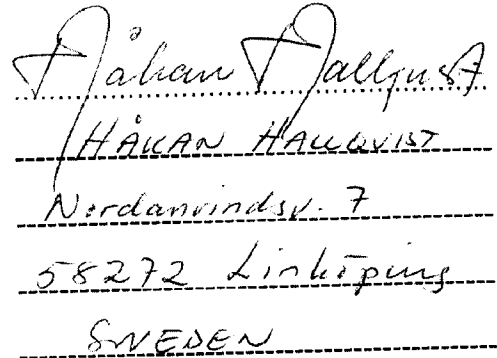 Håkan Hallqvist
HÅKAN HALLQVIST
Nordanvindsv. 7
58272 Linköping
SWEDEN